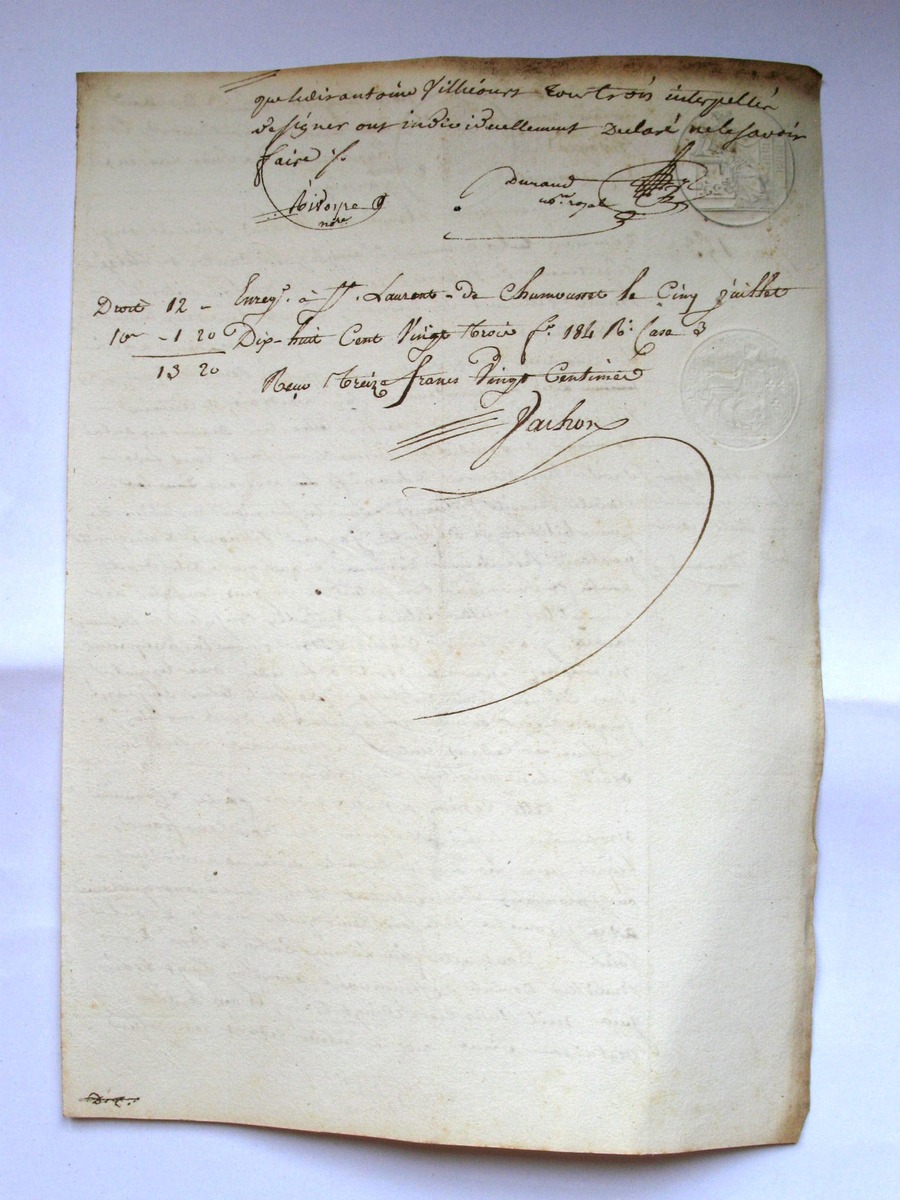 que ledit antoine Villiecourt tous trois interpellés
de signer ont individuellement declaré ne le savoir
faire /.
nore
Durand
nre royal
Droit 12 - Enregt. à St. Laurent-de Chamousset le Cinq juillet
10e - 1 20 Dix-huit Cent Vingt Trois fo. 184 Ro. Case 3
13 20 Reçu Treize francs Vingt Centimes
Vachon